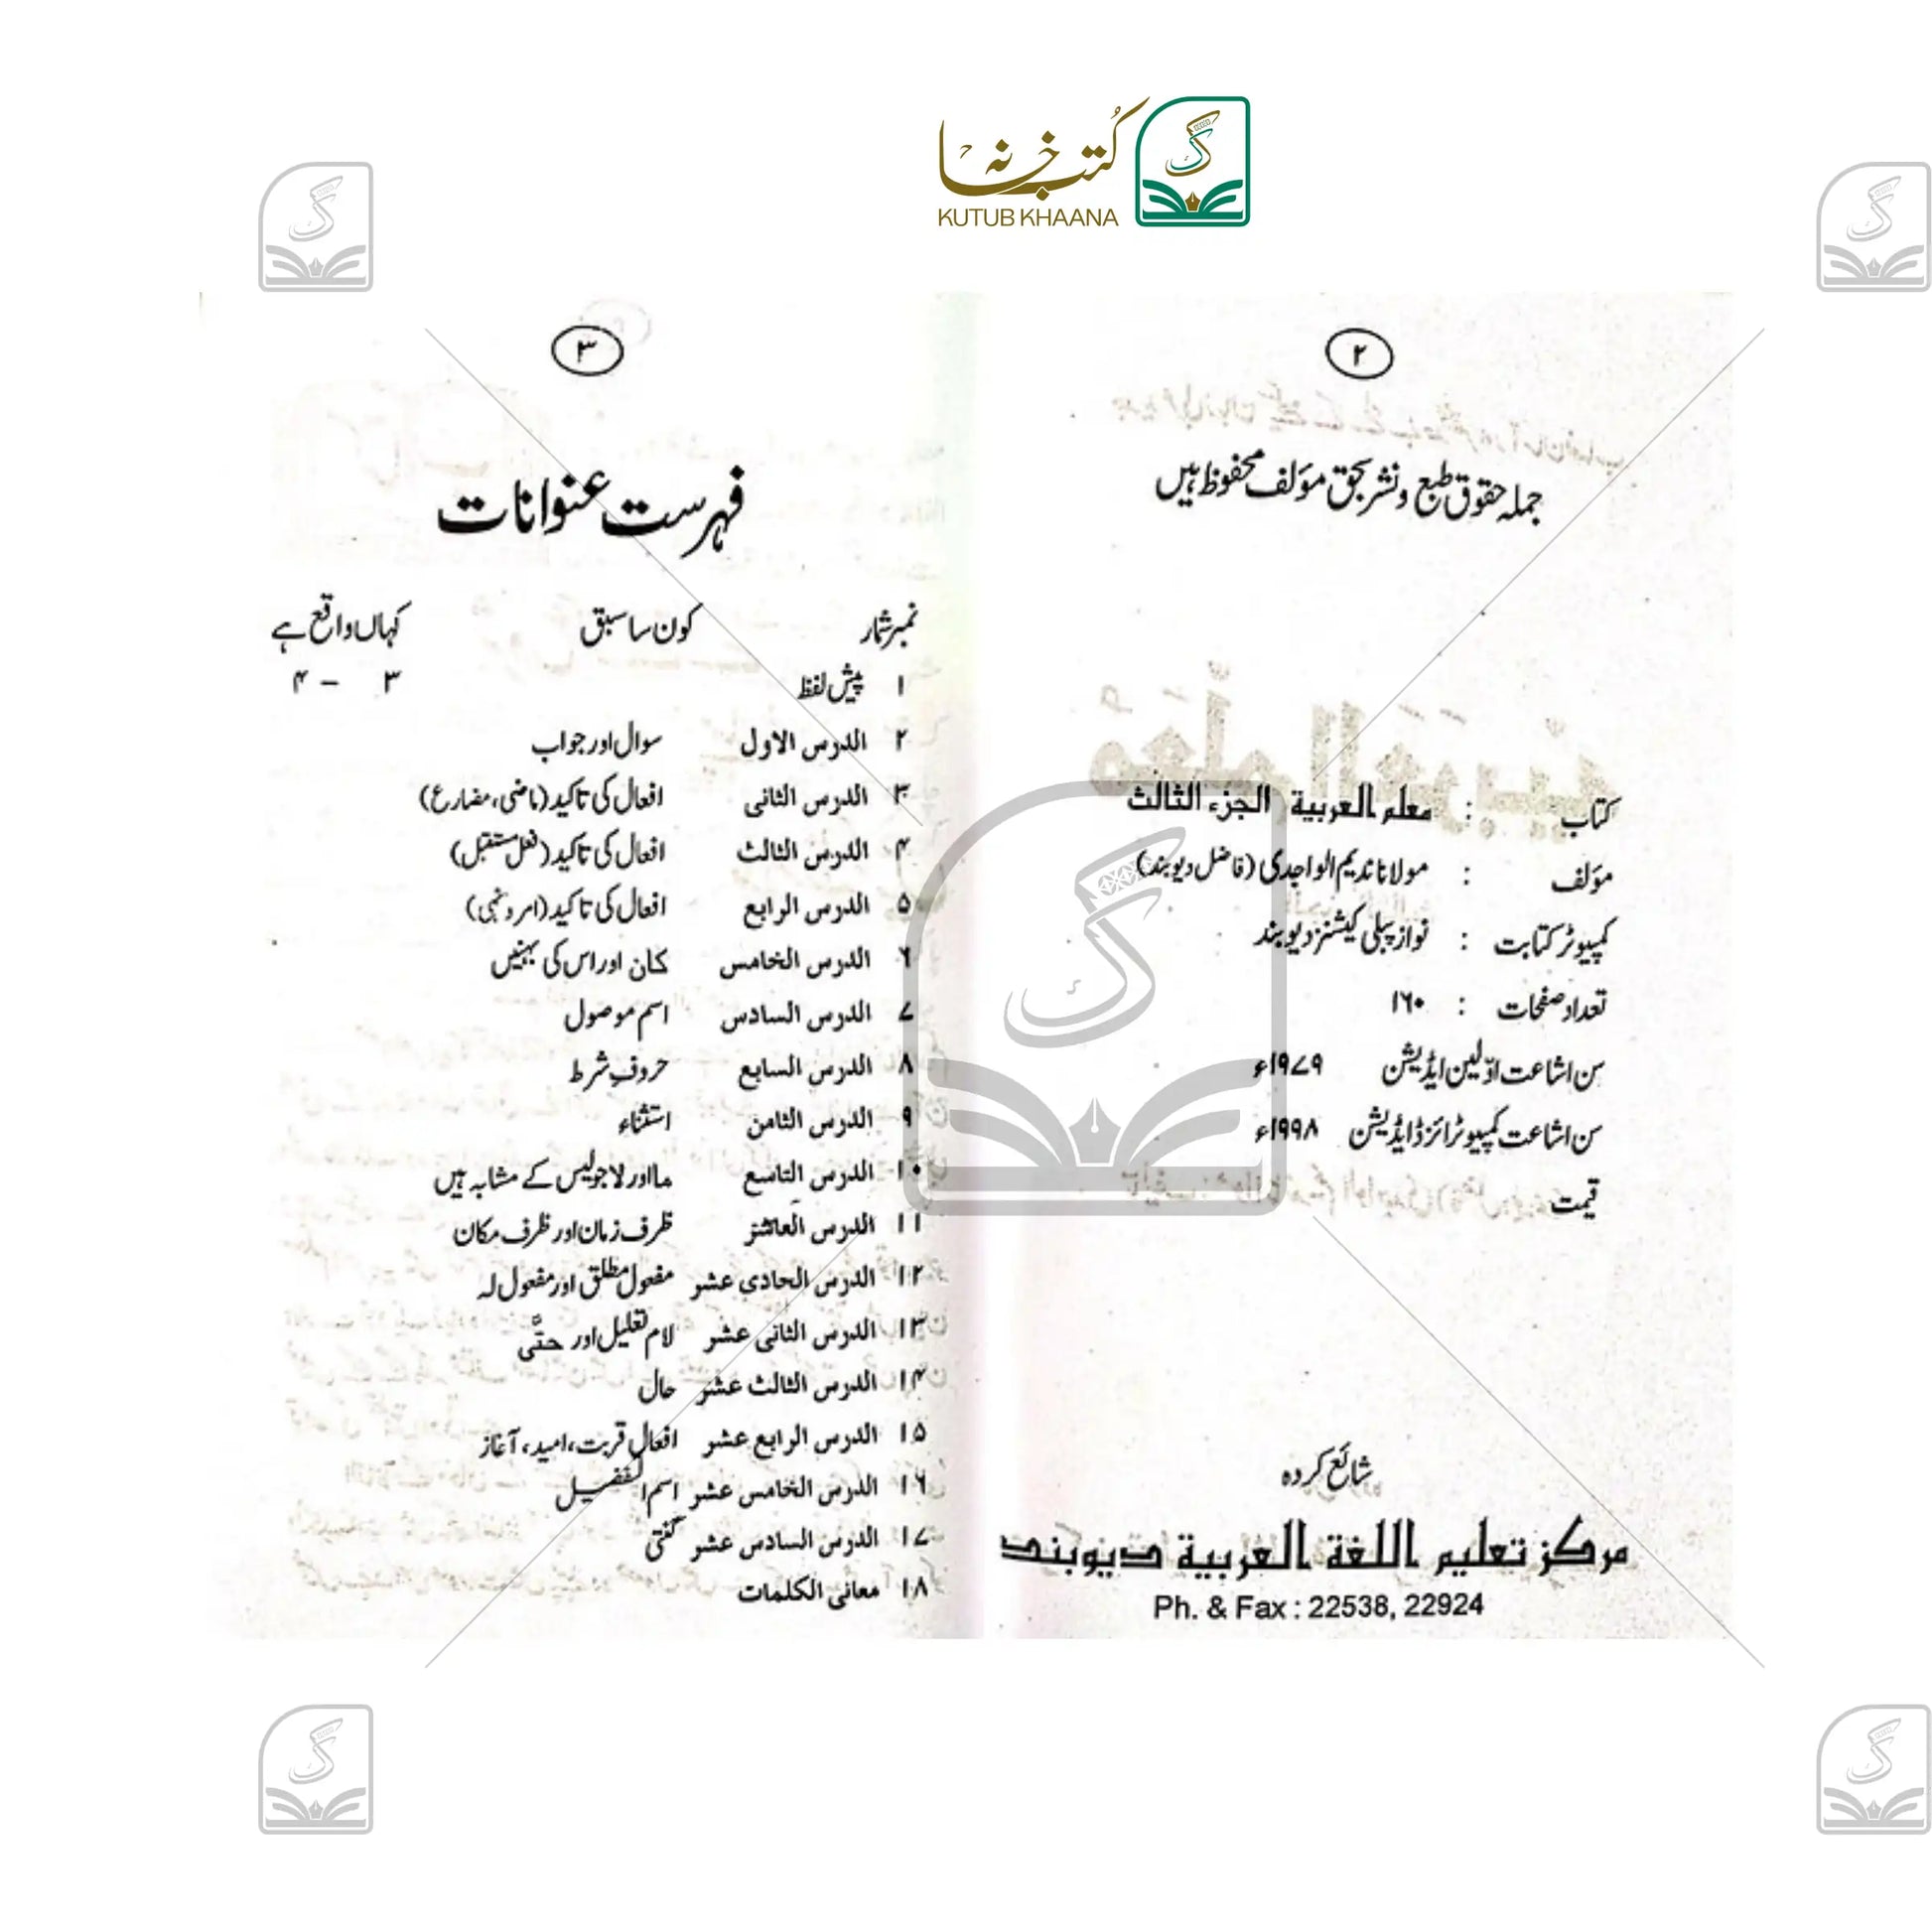 کتب خانہ
KUTUB KHAANA
۲
جملہ حقوق طبع و نشر بحق مؤلف محفوظ ہیں
کتاب : معلم العربية الجزء الثالث
مؤلف : مولانا ندیم الواجدی (فاضل دیوبند)
کمپیوٹر کتابت : نواز پبلی کیشنز دیوبند
تعداد صفحات : ۱۶۰
سن اشاعت اوّلین ایڈیشن ۱۹۷۹ء
سن اشاعت کمپیوٹرائزڈ ایڈیشن ۱۹۹۸ء
قیمت
شائع کردہ
مركز تعليم اللغة العربية ديوبند
Ph. & Fax : 22538, 22924
۳
فہرست عنوانات
نمبر شمار کون سا سبق کہاں واقع ہے
۱ پیش لفظ ۳ – ۴
۲ الدرس الاول سوال اور جواب
۳ الدرس الثانی افعال کی تاکید (ماضی، مضارع)
۴ الدرس الثالث افعال کی تاکید (فعل مستقبل)
۵ الدرس الرابع افعال کی تاکید (امر و نہی)
۶ الدرس الخامس کان اور اس کی بہنیں
۷ الدرس السادس اسم موصول
۸ الدرس السابع حروفِ شرط
۹ الدرس الثامن استثناء
۱۰ الدرس التاسع ما اور لا جو لیس کے مشابہ ہیں
۱۱ الدرس العاشر ظرف زمان اور ظرف مکان
۱۲ الدرس الحادی عشر مفعول مطلق اور مفعول لہ
۱۳ الدرس الثانی عشر لام تعلیل اور حتّٰی
۱۴ الدرس الثالث عشر حال
۱۵ الدرس الرابع عشر افعال قربت، امید، آغاز
۱۶ الدرس الخامس عشر اسم التفضیل
۱۷ الدرس السادس عشر گنتی
۱۸ معانی الکلمات